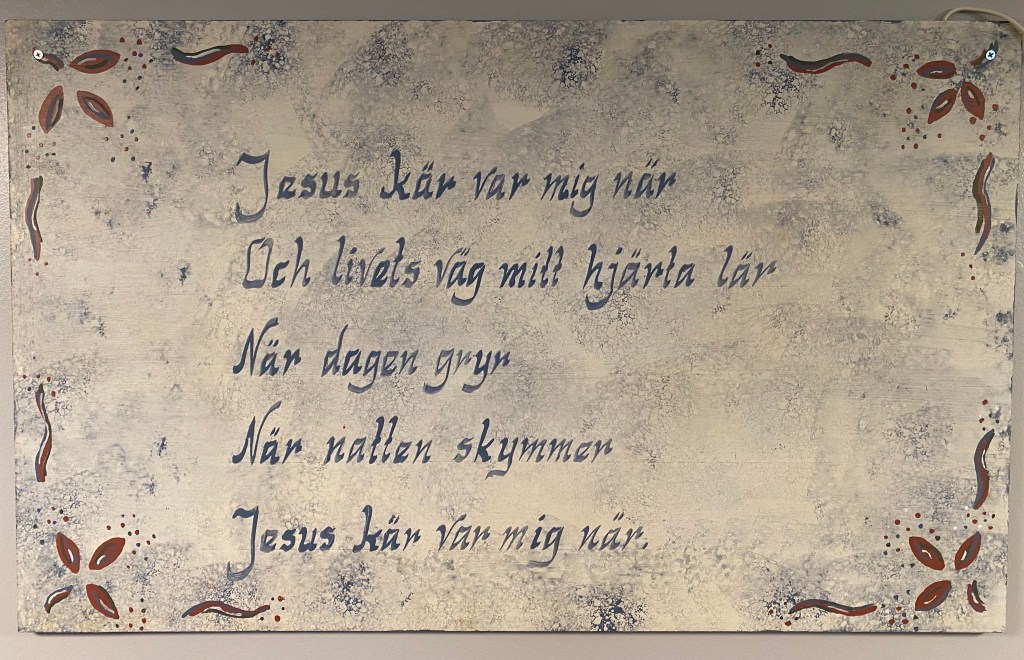 Jesus kär var mig när
Och livets väg mitt hjärta lär
När dagen gryr
När natten skymmer
Jesus kär var mig när.